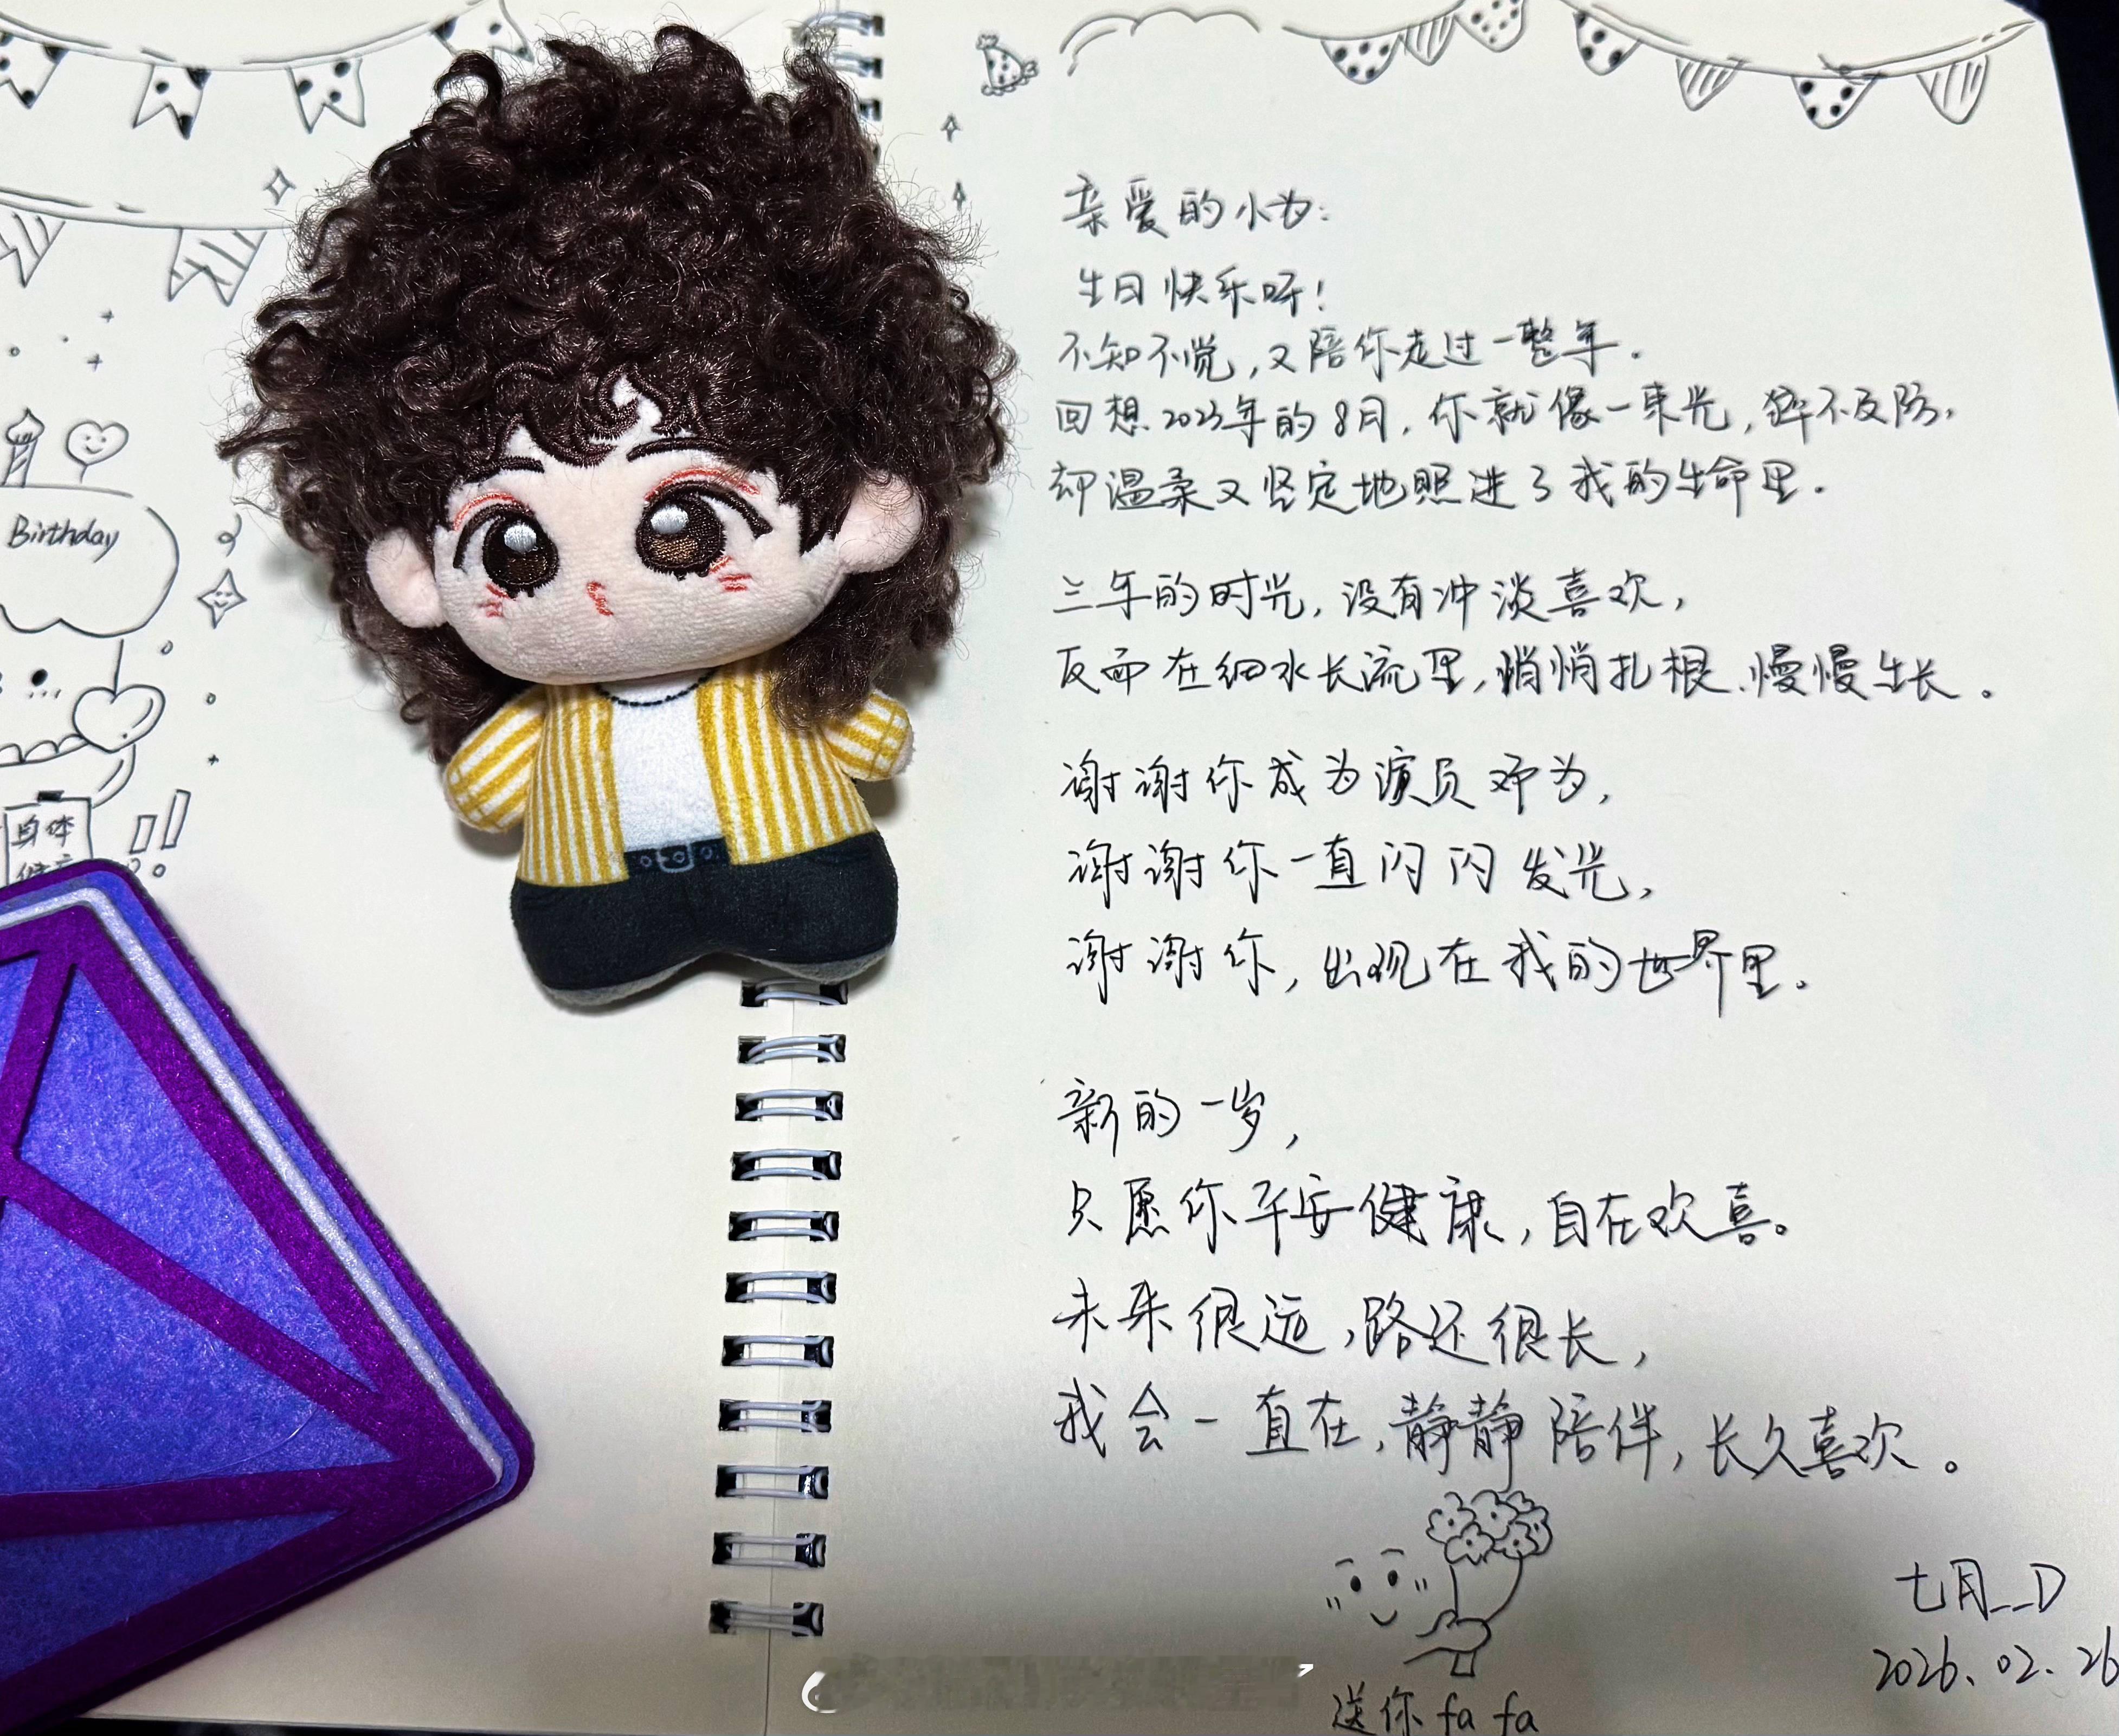 Birthday
身体
亲爱的小为:
生日快乐呀!
不知不觉,又陪你走过一整年.
回想2023年的8月,你就像一束光,猝不及防,
却温柔又坚定地照进了我的生命里.
三年的时光,没有冲淡喜欢,
反而在细水长流里,悄悄扎根、慢慢生长。
谢谢你成为演员邓为,
谢谢你一直闪闪发光,
谢谢你,出现在我的世界里.
新的一岁,
只愿你平安健康,自在欢喜。
未来很远,路还很长,
我会一直在,静静陪伴,长久喜欢。
送你 fa fa
七月__D
2026.02.26